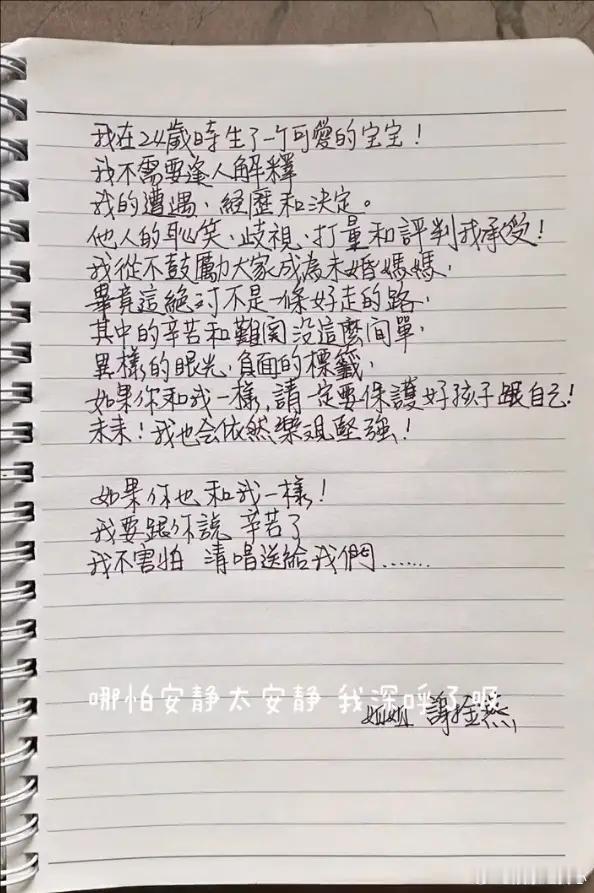 我在24歲時生了一个可愛的宝宝！
我不需要逢人解釋
我的遭遇、經歷和決定。
他人的恥笑、歧視、打量和評判我承受！
我從不鼓勵大家成為未婚媽媽，
畢竟這絕对不是一條好走的路，
其中的辛苦和難関没這麼间單，
異樣的眼光、負面的標籤，
如果你和我一樣，請一定要保護好孩子跟自己！
未来！我也会依然樂观堅強！
如果你也和我一樣！
我要跟你說 辛苦了
我不害怕 清唱送給我們……
哪怕安静太安静 我深呼了吸
妞妞 謝金燕